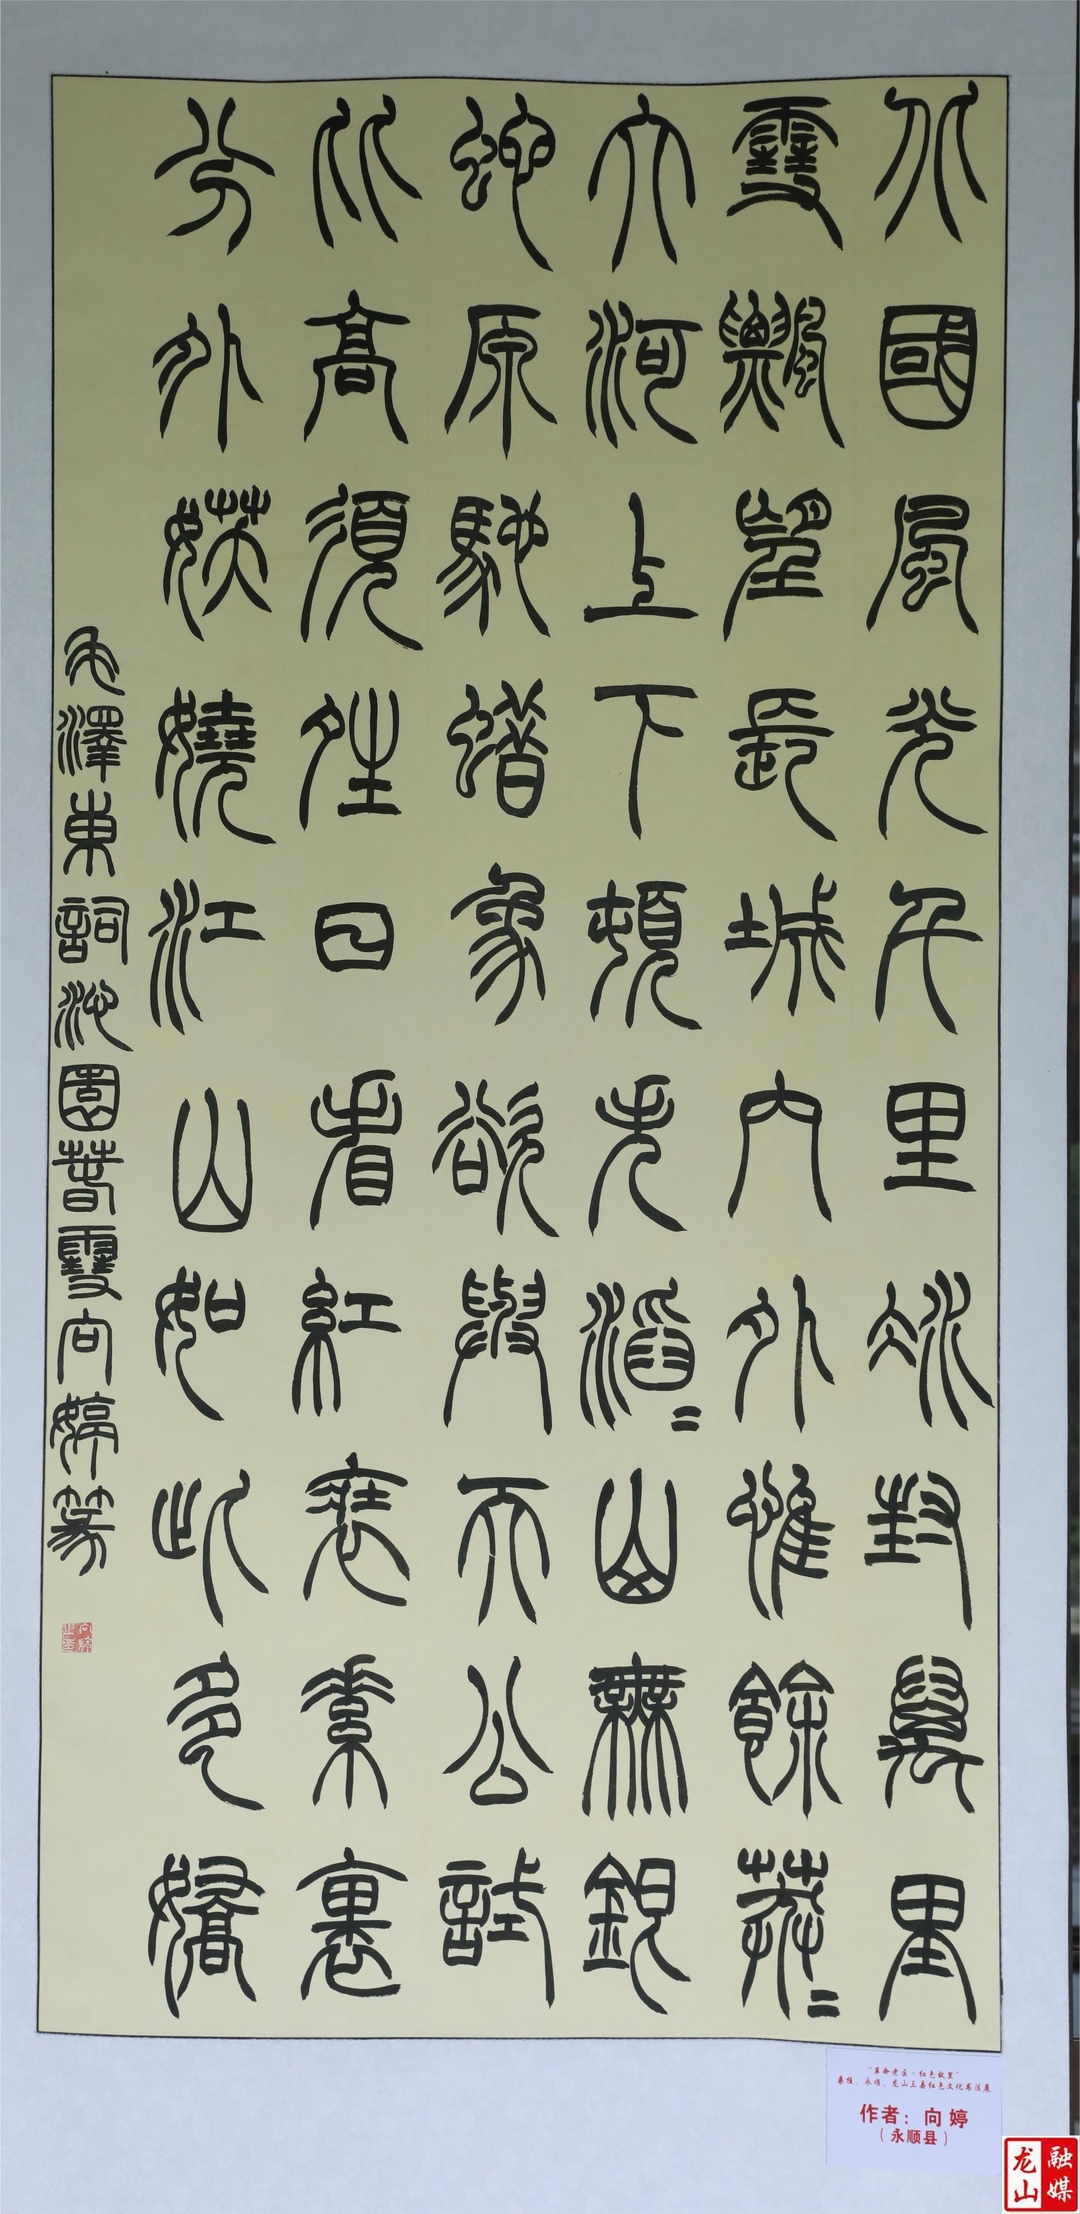 北國風光千里冰封萬里
雪飄望長城內外惟餘莽〻
大河上下頓失滔〻山舞銀
蛇原馳蜡象欲與天公試
比高須晴日看紅裝素裹
分外妖嬈江山如此多嬌
毛澤東詞沁園春雪向婷篆
向婷之印
“革命老区·红色故里”
桑植、永顺、龙山三县红色文化书法展
作者：向婷
（永顺县）
龙山融媒